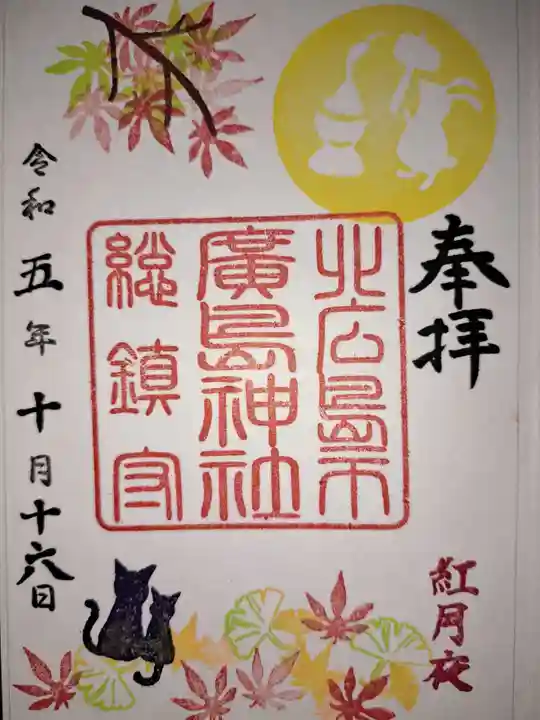 奉拝
紅月夜
北広島市
廣島神社
総鎮守
令和五年十月十六日